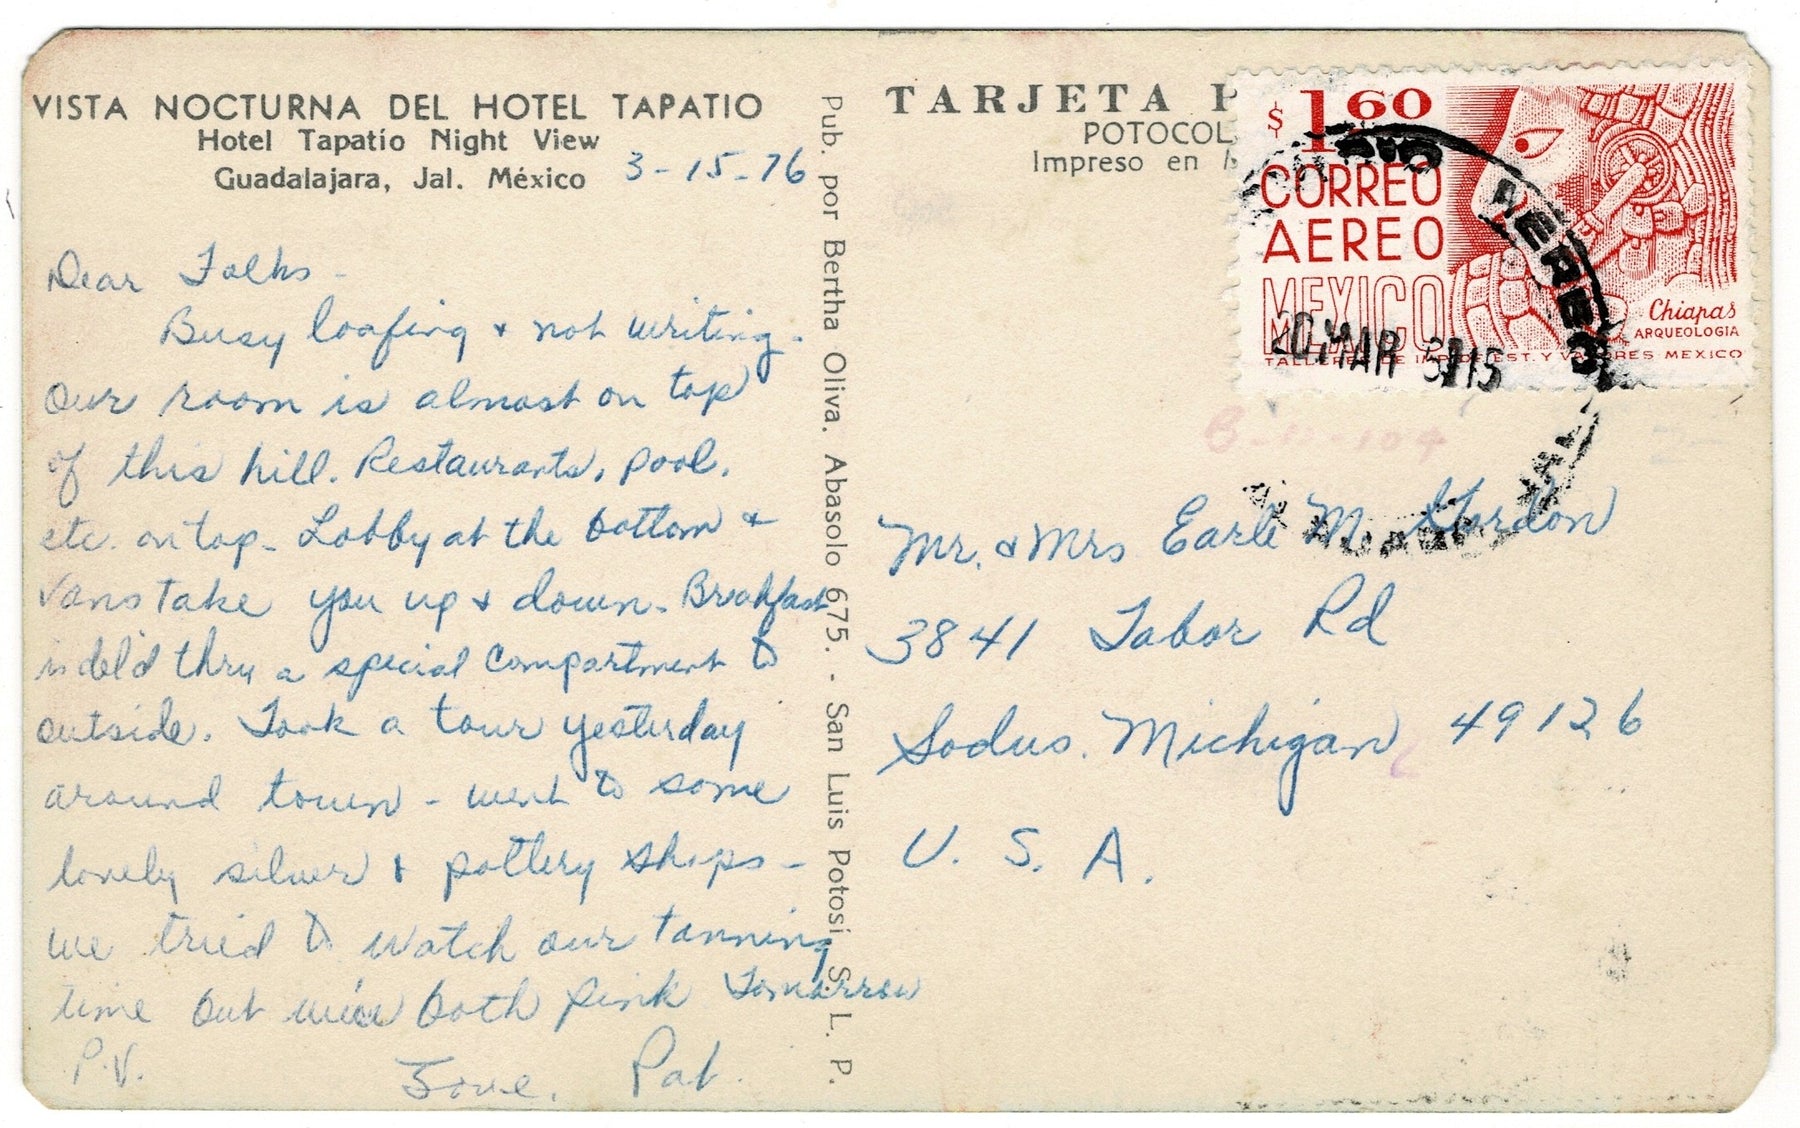 VISTA NOCTURNA DEL HOTEL TAPATIO
Hotel Tapatío Night View
Guadalajara, Jal. México
3-15-76
Dear Folks -
Busy loafing & not writing.
Our room is almost on top
of this hill. Restaurants, pool,
etc. on top - Lobby at the bottom &
vans take you up & down. Breakfast
is del'd thru a special compartment to
outside. Took a tour yesterday
around town - went to some
lovely silver & pottery shops -
we tried to watch our tanning
time but we're both pink Tomorrow
P.V.
Love, Pat.
Pub. por Bertha Oliva. Abasolo 675. - San Luis Potosi S. L. P.
TARJETA P
POTOCOL
Impreso en
$1.60
CORREO
AEREO
MEXICO
Chiapas
ARQUEOLOGIA
MAR
Mr. & Mrs Earle M. Gordon
3841 Tabor Rd
Sodus, Michigan 49126
U. S. A.